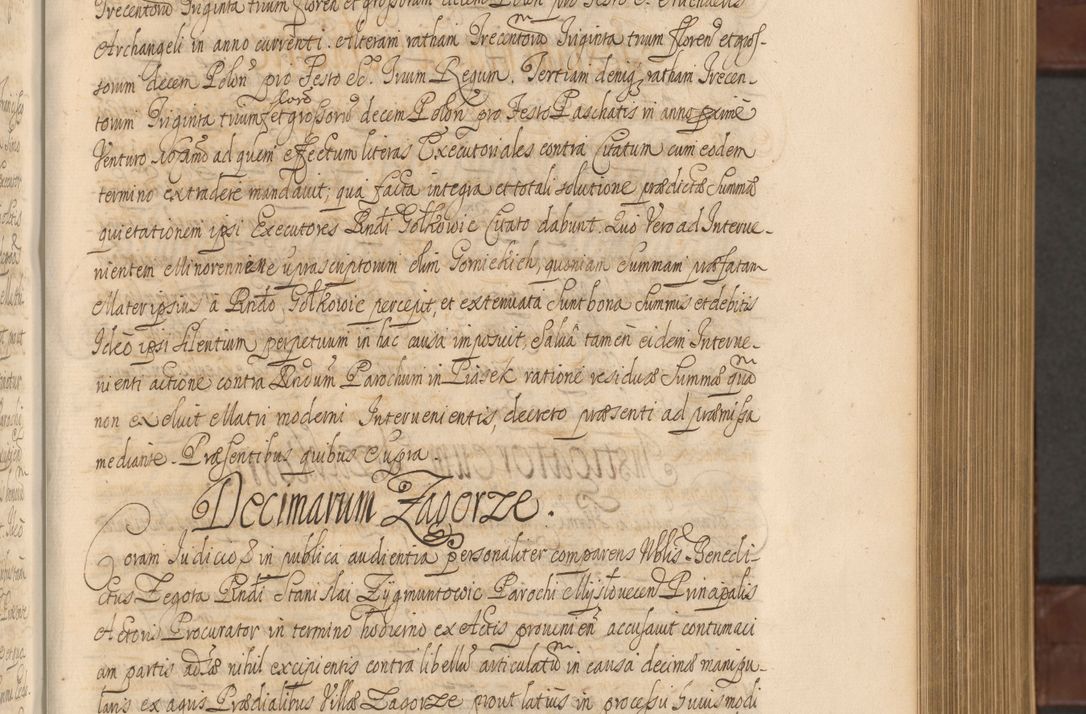 Trecentorũ Triginta trium florea et grossorum decem Polon pro Festo S. Michaelis
Archangeli in anno currenti. Alteram ratham Trecentorũ Triginta trium floren et gros-
sorum decem Polon pro Festo SS. Trium Regum. Tertiam deniq ratham Trecen-
torum Triginta trium floro et grossorũ decem Polon pro Festo Paschatis in anno proximè
Venturo ad quem effectum literas Executoriales contra Citatum cum eodem
termino extradere mandavit; qua facta integra et totali solutione prædictæ Summæ
quietationem ipsi Executores Rndi Golkowic Citato dabunt. Quo Vero ad Interve-
nientem Minorennem suprascriptorum olim Gornickich, quoniam Summam præfatam
Mater ipsius à Rndo Golkowic percepit, et extenuata sunt bona Summis et debitis
Ideò ipsi silentium perpetuum in hac causa imposuit. Salvâ tamen eidem Interve-
nienti actione contra Rndum Parochum in Piasek ratione residuæ Summæ quã
non exsolvit Matri moderni Intervenientis, decreto præsenti ad præmissa
mediante. Præsentibus quibus Supra.
Decimarum Zagorze.
Coram Judicio & in publica audientia personaliter comparens Nblis Benedi-
ctus Zegota Rndi Stanislai Zygmuntowic Parochi Myslovecen Principalis
Actoris Procurator in termino hodierno ex Actis provenien accusavit contumaci
am partis adsæ nihil excipientis contra libellũ articulatũ in causa decimæ manipu-
laris ex agris Prædialibus Villæ Zagorze prout latius in processu huiusmodi